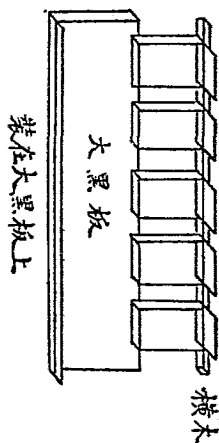 横木
大黑板
裝在大黑板上